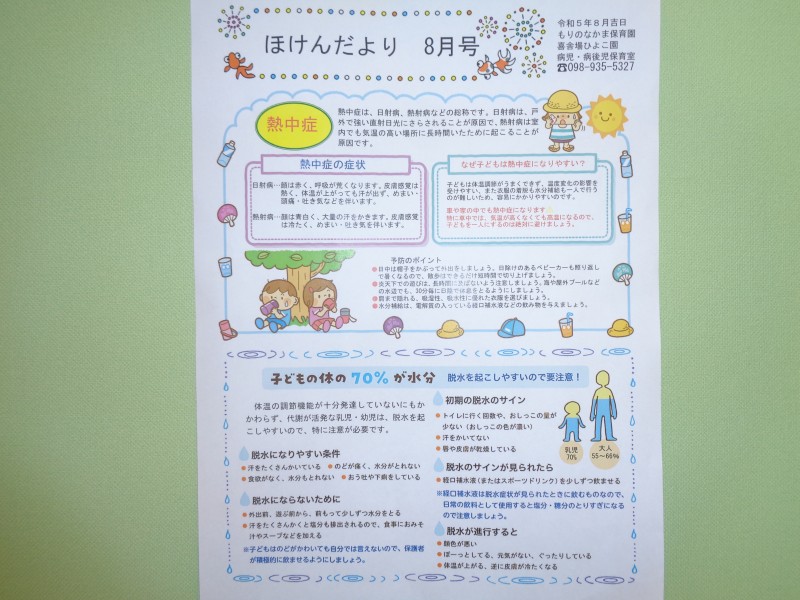 令和5年8月吉日
もりのなかま保育園
喜舎場ひよこ園
病児・病後児保育室
☎098-935-5327
ほけんだより 8月号
熱中症
熱中症は、日射病、熱射病などの総称です。日射病は、戸
外で強い直射日光にさらされることが原因で、熱射病は室
内でも気温の高い場所に長時間いたために起こることが
原因です。
熱中症の症状
日射病…顔は赤く、呼吸が荒くなります。皮膚感覚は
熱く、体温が上がっても汗が出ず、めまい・
頭痛・吐き気などを伴います。
熱射病…顔は青白く、大量の汗をかきます。皮膚感覚
は冷たく、めまい・吐き気を伴います。
なぜ子どもは熱中症になりやすい?
子どもは体温調節がうまくできず、温度変化の影響を
受けやすい、また衣服の着脱も水分補給も一人で行う
のが難しいため、容易にかかりやすいのです。
車や家の中でも熱中症になります
特に車中では、気温が高くなくても高温になるので、
子どもを一人にするのは絶対に避けましょう。
予防のポイント
●日中は帽子をかぶって外出をしましょう。日除けのあるベビーカーも照り返し
で暑くなるので、散歩はできるだけ短時間で切り上げましょう。
●炎天下での遊びは、長時間に及ばないよう注意しましょう。海や屋外プールなど
の水辺でも、30分毎に日陰で休息をとるようにしましょう。
●肩まで隠れる、吸湿性、吸水性に優れた衣服を選びましょう。
●水分補給は、電解質の入っている経口補水液などの飲み物を与えましょう。
子どもの体の70%が水分 脱水を起こしやすいので要注意!
体温の調節機能が十分発達していないにもか
かわらず、代謝が活発な乳児・幼児は、脱水を起
こしやすいので、特に注意が必要です。
脱水になりやすい条件
●汗をたくさんかいている ●のどが痛く、水分がとれない
●食欲がなく、水分もとれない ●おう吐や下痢をしている
脱水にならないために
●外出前、遊ぶ前から、前もって少しずつ水分をとる
●汗をたくさんかくと塩分も排出されるので、食事におみそ
汁やスープなどを加える
※子どもはのどがかわいても自分では言えないので、保護者
が積極的に飲ませるようにしましょう。
初期の脱水のサイン
●トイレに行く回数や、おしっこの量が
少ない(おしっこの色が濃い)
●汗をかいてない
●唇や皮膚が乾燥している
乳児
70%
大人
55～66%
脱水のサインが見られたら
●経口補水液(またはスポーツドリンク)を少しずつ飲ませる
※経口補水液は脱水症状が見られたときに飲むものなので、
日常の飲料として使用すると塩分・糖分のとりすぎになる
ので注意しましょう。
脱水が進行すると
●顔色が悪い
●ぼーっとしてる、元気がない、ぐったりしている
●体温が上がる、逆に皮膚が冷たくなる